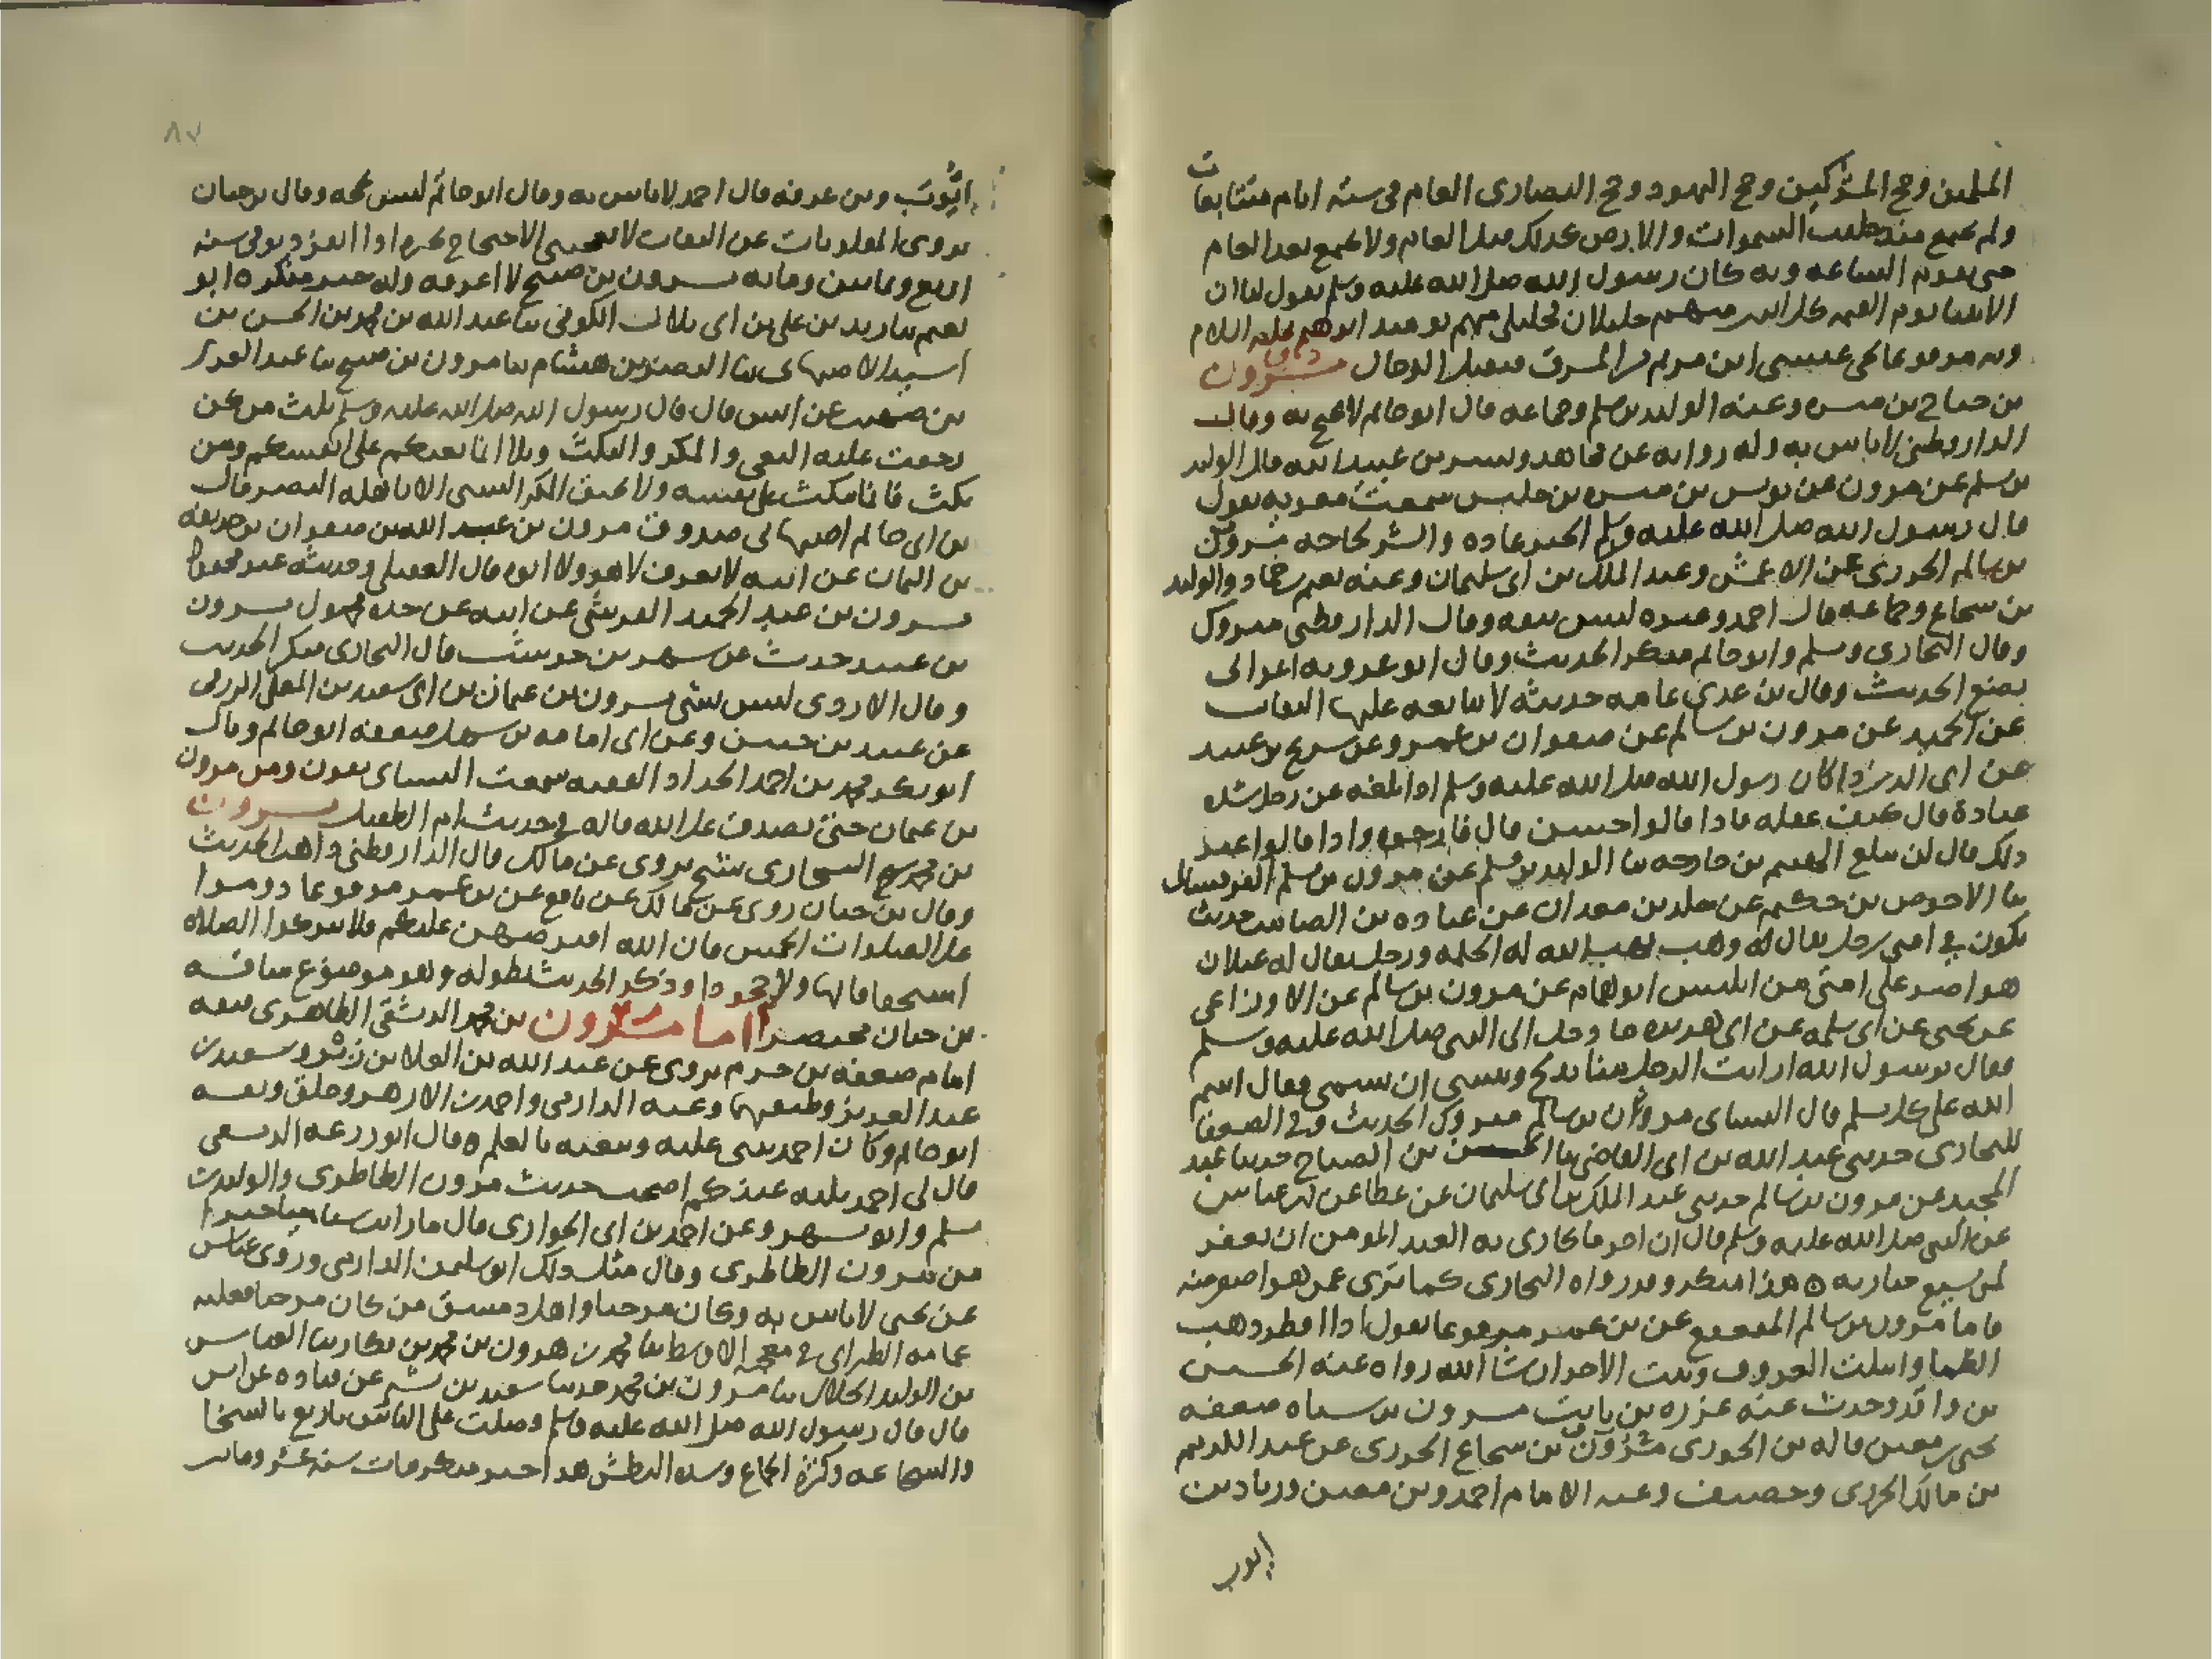 المسلمين وحج المشركين وحج اليهود وحج النصارى العام في ستة ايام متتابعات
ولم يجتمع منذ خلقت السموات والارض كذلك قبل العام ولا يجتمع بعد العام
حتى تقوم الساعة وبه كان رسول الله صلى الله عليه وسلم يقول لنا ان
الانبيا يوم القيمة كل اثنين منهم خليلان فخليلي منهم يوميد ابرهيم عليه السلام
وبه مرفوعا يجي عيسى ابن مريم من المشرق فيقتل الدجال مرون
بن جناح بن وعنه الوليد بن مسلم وجماعة قال ابو حاتم لا يحتج به وقال
الدارقطني لا باس به وله رواية عن مجاهد وبسر بن عبيد الله قال الوليد
بن مسلم عن مرون عن يونس بن ميسرة بن حلبس سمعت معوية يقول
قال رسول الله صلى الله عليه وسلم الخير عادة والشر لجاجة مرون
بن سالم الجزري عن الاعمش وعبد الملك بن ابي سليمان وعنه نعيم بن حماد والوليد
بن شجاع وجماعة قال احمد وغيره ليس بثقة وقال الدارقطني متروك
وقال البخاري ومسلم وابو حاتم منكر الحديث وقال ابو عروبة الحراني
يضع الحديث وقال بن عدي عامة حديثه لا يتابعه عليها الثقات
عن مرون بن سالم عن صفوان بن عمرو عن شريح بن عبيد
عن ابي الدرداء كان رسول الله صلى الله عليه وسلم اذا بلغه عن رجل شدة
عبادة قال كيف عقله فاذا قالوا حسن قال فارجوه واذا قالوا غير
ذلك قال لن يبلغ الهيثم بن خارجة ثنا الوليد بن مسلم عن مرون بن سالم
ثنا الاحوص بن حكيم عن خالد بن معدان عن عبادة بن الصامت حديث
يكون في امتي رجل يقال له وهب يهب الله له الحكمة ورجل يقال له غيلان
هو اضر على امتي من ابليس ابو همام عن مرون بن سالم عن الاوزاعي
عن يحيى عن ابي سلمة عن ابي هريرة جا رجل الى النبي صلى الله عليه وسلم
فقال يرسول الله ارايت الرجل منا يذبح وينسى ان يسمي فقال اسم
الله على كل مسلم قال النساي مروان بن سالم متروك الحديث وفي الضعفا
للبخاري حدثني عبد الله بن ابي القاضي ثنا الحسن بن الصباح حدثنا عبد
المجيد عن مرون بن سالم حدثني عبد الملك بن ابي سليمان عن عطا عن بن عباس
عن النبي صلى الله عليه وسلم قال ان اول ما يجازى به العبد المومن ان يغفر
لمن شيع جنازته هذا منكر وقد رواه البخاري كما ترى عمن هو اصغر منه
فاما مرون بن سالم المقفع عن بن عمر مرفوعا يقول اذا افطر ذهب
الظما وابتلت العروق وثبت الاجر ان شا الله رواه عنه الحسين
بن واقد وحدث عنه عزرة بن ثابت مرون بن سياه ضعفه
يحيى بن معين قاله بن الجوزي مرون بن شجاع الجزري عن عبد الكريم
بن مالك الجزري وخصيف وعنه الامام احمد وبن معين وزياد بن
ايوب
٨٧
ايوب وبن عرفة قال احمد لا باس به وقال ابو حاتم ليس بحجة وقال بن حبان
يروي المقلوبات عن الثقات لا يعجبني الاحتجاج بخبره اذا انفرد توفي سنة
اربع وثمانين وماية مرون بن صبيح لا اعرفه وله خبر منكر ابو
نعيم ثنا زيد بن علي بن ابي بلال الكوفي ثنا عبد الله بن محمد بن الحسن بن
اسيد الاصبهاني ثنا النضر بن هشام ثنا مرون بن صبيح ثنا عبد العزيز
بن صهيب عن انس قال قال رسول الله صلى الله عليه وسلم ثلث من كن
رجعت عليه البغي والمكر والنكث وتلا انما بغيكم على انفسكم ومن
نكث فانما ينكث على نفسه ولا يحيق المكر السيئ الا باهله النضر قال
بن ابي حاتم اصبهاني صدوق مرون بن عبد الله بن صفوان بن حذيفة
بن اليمان عن ابيه لا يعرف لا هو ولا ابوه قال العقيلي وحديثه غير محفوظ
مرون بن عبد الحميد القرشي عن ابيه عن جده مجهول مرون
بن عبيد حدث عن شهر بن حوشب قال البخاري منكر الحديث
وقال الازدي ليس بشي مرون بن عثمان بن ابي سعيد بن المعلى الزرقي
عن عبيد بن حنين وعن ابي امامة بن سهل ضعفه ابو حاتم وقال
ابو بكر محمد بن احمد الحداد الفقيه سمعت النساي يقول ومن مرون
بن عثمان حتى يصدق على الله قاله في حديث ام الطفيل مرون
بن محمد السنجاري شيخ يروي عن مالك قال الدارقطني ذاهب الحديث
وقال بن حبان روى عن مالك عن نافع عن بن عمر مرفوعا دوموا
على الصلوات الخمس فان الله افترضهن عليكم فلا تتركوا الصلاة
استخفافا بها ولا جحودا وذكر الحديث بطوله وهو موضوع ساقه
بن حبان مختصرا اما مرون بن محمد الدمشقي الطاطري ثقة
امام ضعفه بن حزم يروي عن عبد الله بن العلا بن زبر وسعيد بن
عبد العزيز وطبقتهما وعنه الدارمي واحمد بن الازهر وخلق وثقه
ابو حاتم وكان احمد يثني عليه ويصفه بالعلم قال ابو زرعة الدمشقي
قال لي احمد بلية عندكم اصحاب حديث مرون الطاطري والوليد بن
مسلم وابو مسهر وعن احمد بن ابي الحواري قال ما رايت شاميا خيرا
من مرون الطاطري وقال مثل ذلك ابو سليمن الداراني وروى عباس
عن يحيى لا باس به وكان مرجيا واهل دمشق من كان مرجيا فعليه
عمامة الطبراني في معجمه الاوسط ثنا محمد بن هرون بن محمد بن بكار ثنا العباس
بن الوليد الخلال ثنا مرون بن محمد حدثنا سعيد بن بشير عن قتادة عن انس
قال قال رسول الله صلى الله عليه وسلم فضلت على الناس باربع بالسخا
والشجاعة وكثرة الجماع وشدة البطش هذا خبر منكر مات سنة عشر وماتين